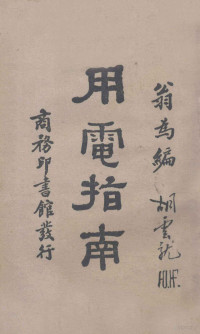 翁為編
胡雲龍
用電指南
商務印書館發行